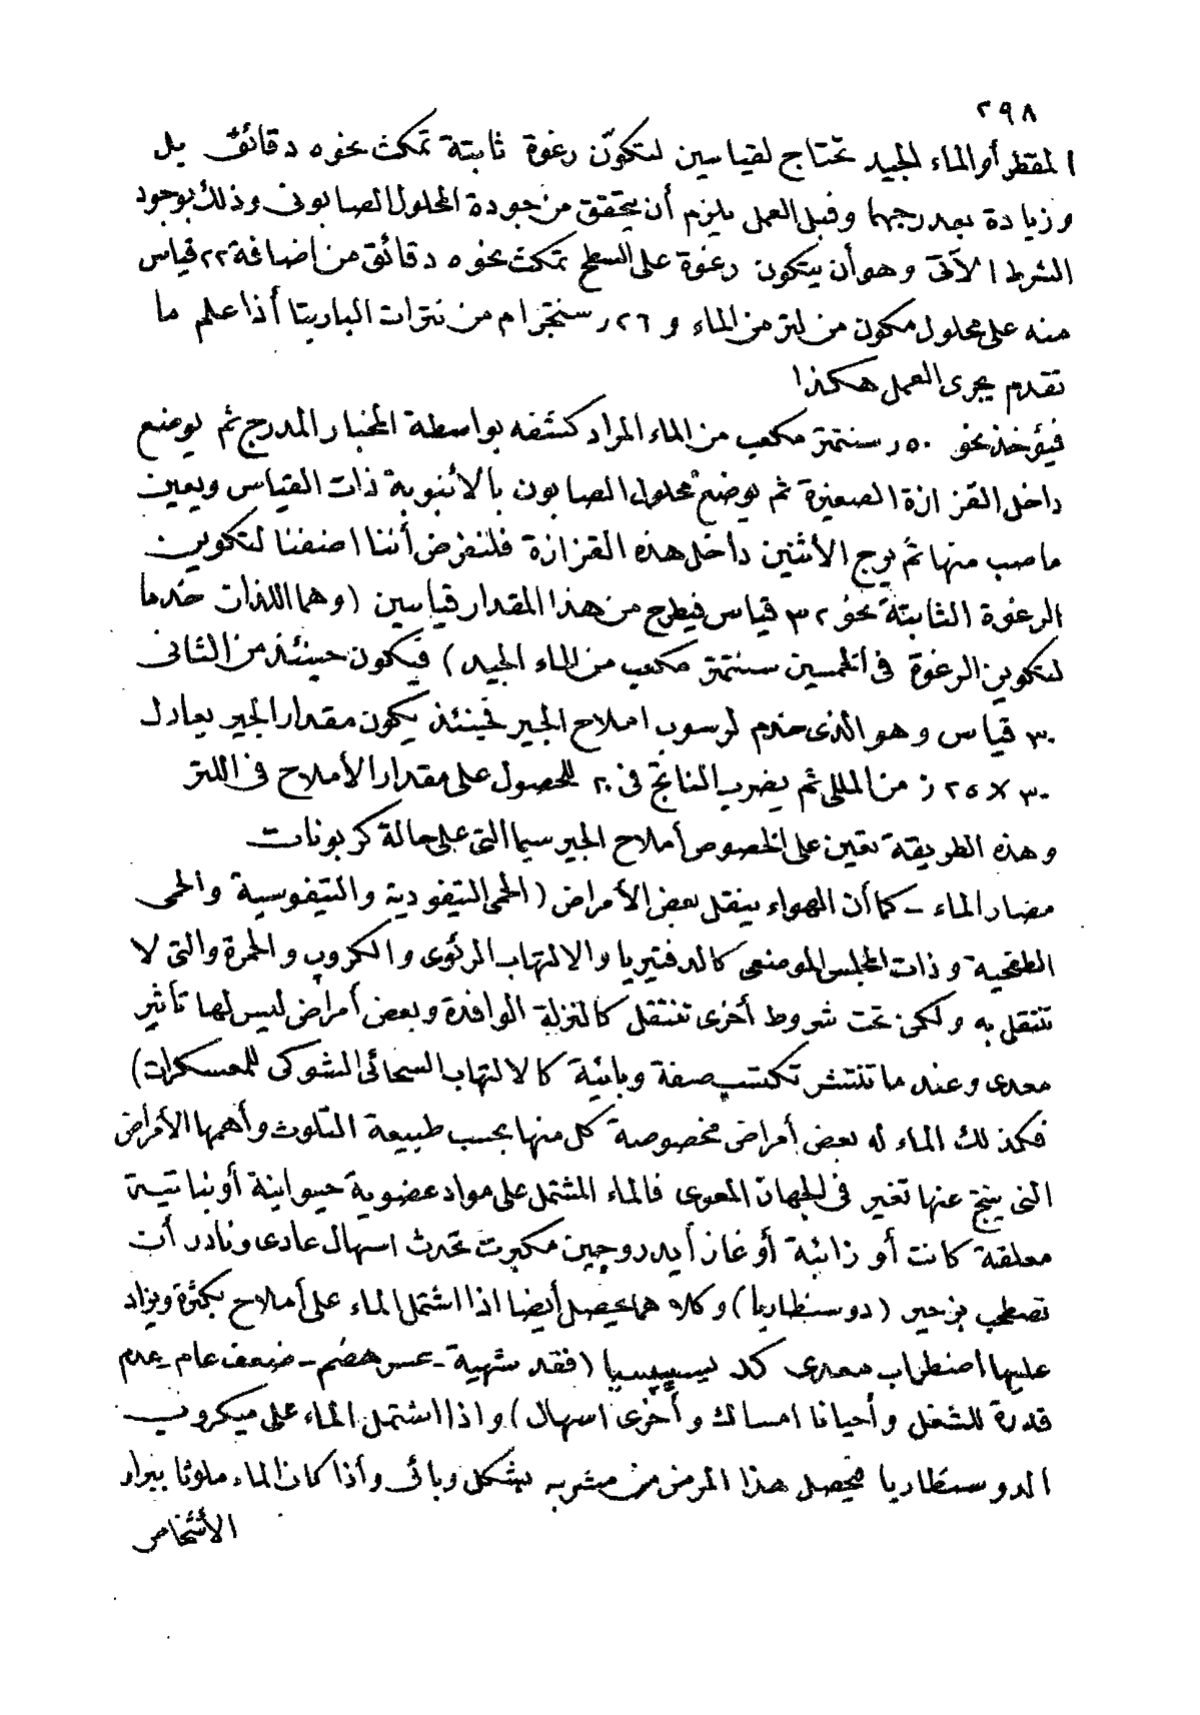 ٢٩٨
المقطر أو الماء الجيد تحتاج لقياسين لتكوّن رغوة ثابتة تمكث نحو ٥ دقائق بل
وزيادة بعد رجهما وقبل العمل يلزم أن يتحقق من جودة المحلول الصابونى وذلك بوجود
الشرط الآتى وهو أن يتكون رغوة على السطح تمكث نحو ٥ دقائق من اضافة ٢٢ قياس
منه على محلول مكون من لتر من الماء و ٢٦ر سنتجرام من نترات الباريتا أذا علم ما
تقدم يجرى العمل هكذا
فيؤخذ نحو ٥٠ر سنتمتر مكعب من الماء المراد كشفه بواسطة المخبار المدرج ثم يوضع
داخل القزازة الصغيرة ثم يوضع محلول الصابون بالأنبوبة ذات القياس ويعين
ما صب منها ثم يرج الأثنين داخل هذه القزازة فلنفرض أننا اضفنا لتكوين
الرغوة الثابتة نحو ٣٢ قياس فيطرح من هذا المقدار قياسين (وهما اللذان خدما
لتكوين الرغوة فى الخمسين سنتمتر مكعب من الماء الجيد) فيكون حينئذ من الثانى
٣٠ قياس وهو الذى خدم لرسوب املاح الجير فحينئذ يكون مقدار الجير يعادل
٣٠ × ٢٥ر من المللى ثم يضرب الناتج فى ٢٠ للحصول على مقدار الأملاح فى اللتر
وهذه الطريقة تعين على الخصوص أملاح الجير سيما التى على حالة كربونات
مضار الماء - كما أن الهواء ينقل بعض الأمراض (الحمى التيفودية والتيفوسية والحمى
الطفحية وذات المجلس الموضعى كالدفتيريا والالتهاب الرئوى والكروب والحمرة والتى لا
تنتقل به ولكن تحت شروط أخرى تنتقل كالنزلة الوافدة وبعض أمراض ليس لها تأثير
معدى وعند ما تنتشر تكتسب صفة وبائية كالالتهاب السحائى الشوكى للمعسكرات)
فكذلك الماء له بعض أمراض مخصوصة كل منها بحسب طبيعة التلوث وأهمها الأمراض
التى ينتج عنها تغير فى الجهاز المعوى فالماء المشتمل على مواد عضوية حيوانية أو نباتية
معلقة كانت أو ذائبة أو غاز أيدروجين مكبرت تحدث اسهال عادى ونادر أن
تصطحب بزحير (دوسنطاريا) وكلاهما يحصل أيضا اذا اشتمل الماء على أملاح بكثرة ويزاد
عليها اضطراب معدى كد يسبيسيا (فقد شهية - عسر هضم - ضعف عام - عدم
قدرة للشغل وأحيانا امساك وأخرى اسهال) واذا اشتمل الماء على ميكروب
الدوسنطاريا فيحصل هذا المرض من مشربه بشكل وبائى وأذا كان الماء ملوثا ببراز
الأشخاص